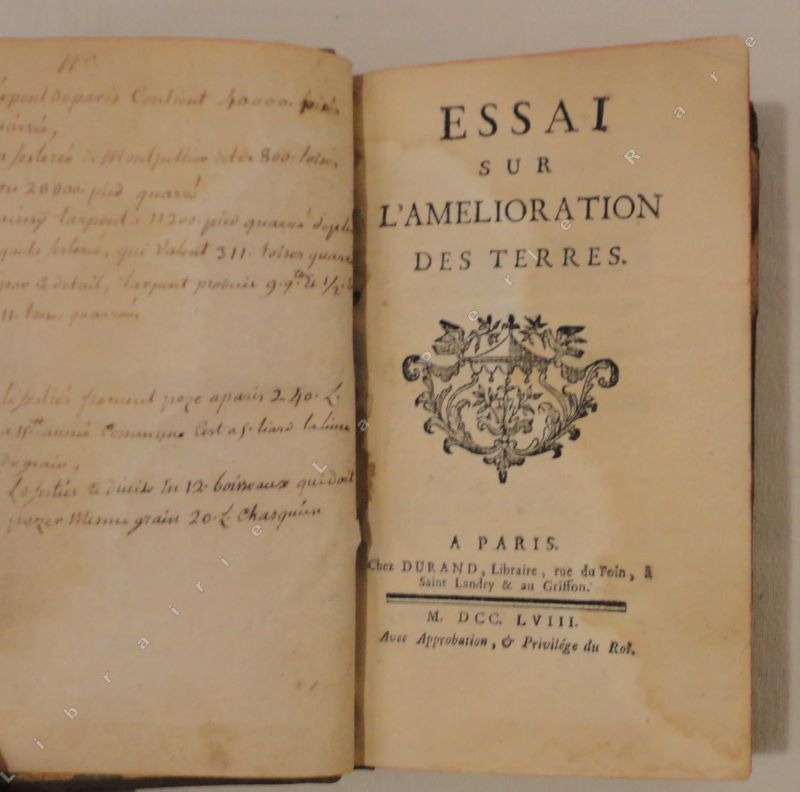 arpent de paris Contient 40000. pieds
quarrés,
de Montpellier est de 800. toises
ou 28800. pied quarré
larpent a 11200. pied quarré de plus
que la , qui valent 311. toises quarré
par ce detail, larpent produit 9. & 1/2. &
11. toises quarrées
froment peze a paris 240. L.
année Commune Cest a 5. liard la livre
de grain,
Le se divise En 12. boisseaux qui doit
pezer Mesme grain 20. L. Chasqu'un
ESSAI
SUR
L'AMELIORATION
DES TERRES.
A PARIS.
Chez DURAND, Libraire, rue du Foin, à
Saint Landry & au Griffon.
M. DCC. LVIII.
Avec Approbation, & Privilége du Roi.
Librairie La perle Rare